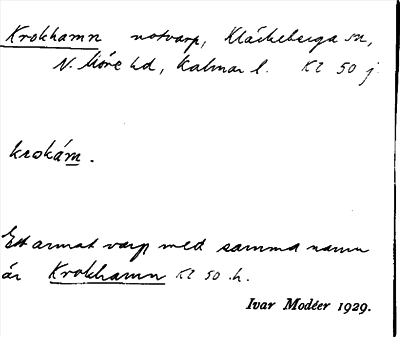 Krokhamn notvarp, Kläckeberga sn,
N. Möre hd, Kalmar l. Kl 50 j.
krokám.
Ett annat varp med samma namn
är Krokhamn Kl 50 h.
Ivar Modéer 1929.